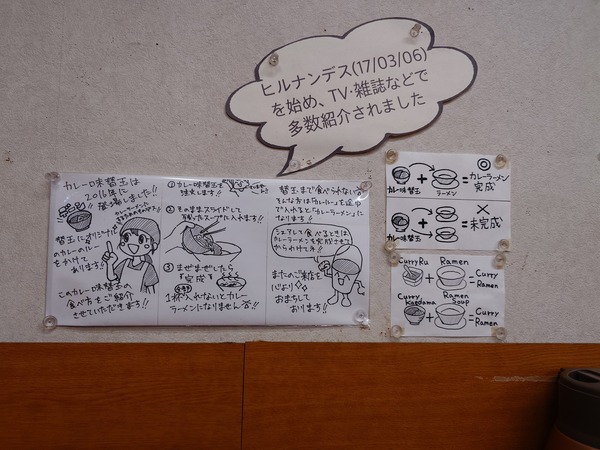 ヒルナンデス(17/03/06)
を始め、TV・雑誌などで
多数紹介されました
カレー味替玉は
2016年に
登場しました!!
替玉にオリジナル
のカレーのルーを
かけて
あります!!
このカレー味替玉の
食べ方をご紹介
させていただきます!!
①カレー味替玉を
注文します!!
②そのままスライドして
残ったスープに入れます!!
③まぜまぜしたら
完成
1杯入れないとカレー
ラーメンになりません!!
替玉まで食べられない
そんな方は「カレールー」を途中
で入れると「カレーラーメン」に
なります!!
シェアして食べるときは
カレーラーメンを完成させて
からわけてネ!!
またのご来店を
心より
おまちして
おります!!
カレー味替玉
+
ラーメン
=カレーラーメン
完成
カレー味替玉
+
=未完成
CurryRu
+
Ramen
=Curry
Ramen
Curry
Kaedama
+
Ramen
Soup
=Curry
Ramen